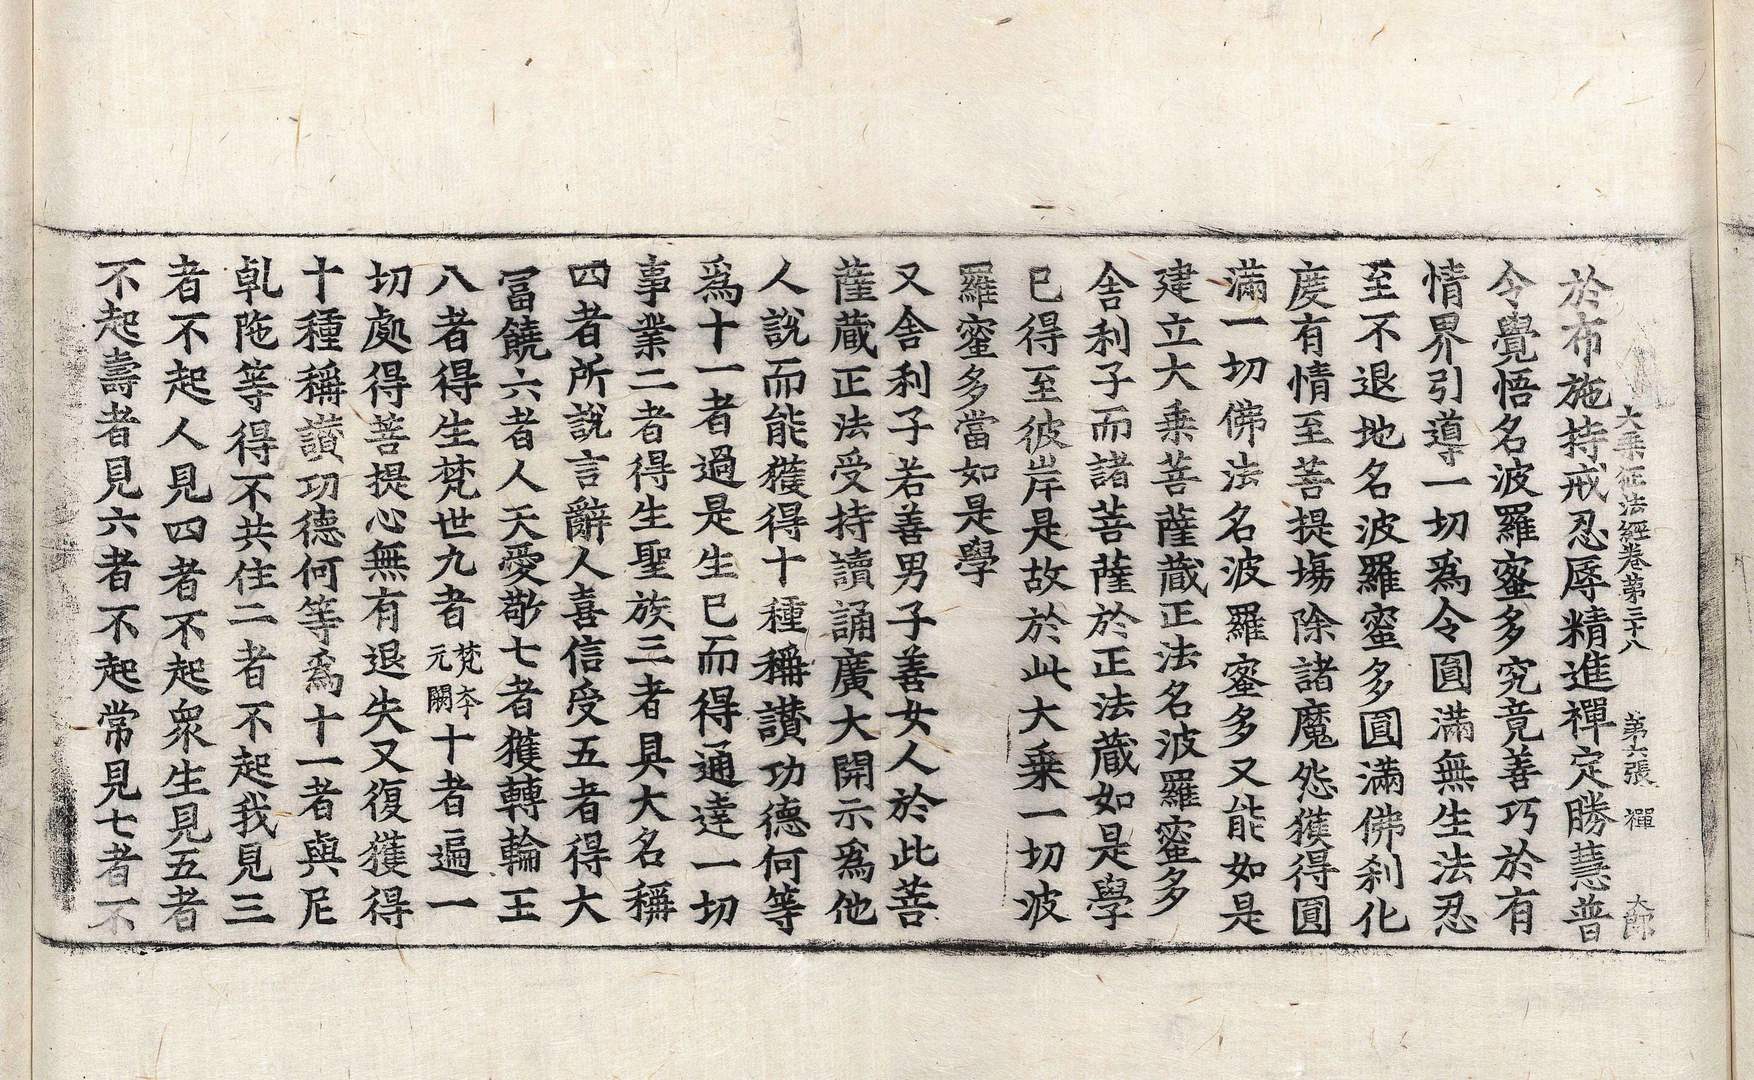 大乘正法經卷第三十八 第六張 禪 大師
於布施持戒忍辱精進禪定勝慧普
令覺悟名波羅蜜多究竟善巧於有
情界引導一切爲令圓滿無生法忍
至不退地名波羅蜜多圓滿佛刹化
度有情至菩提場除諸魔怨獲得圓
滿一切佛法名波羅蜜多又能如是
建立大乘菩薩藏正法名波羅蜜多
舍利子而諸菩薩於正法藏如是學
已得至彼岸是故於此大乘一切波
羅蜜多當如是學
又舍利子若善男子善女人於此菩
薩藏正法受持讀誦廣大開示爲他
人說而能獲得十種稱讃功德何等
爲十一者過是生已而得通達一切
事業二者得生聖族三者具大名稱
四者所說言辭人喜信受五者得大
冨饒六者人天愛敬七者獲轉輪王
八者得生梵世九者梵夲元闕十者遍一
切處得菩提心無有退失又復獲得
十種稱讃功德何等爲十一者與尼
乹陁等得不共住二者不起我見三
者不起人見四者不起衆生見五者
不起壽者見六者不起常見七者不